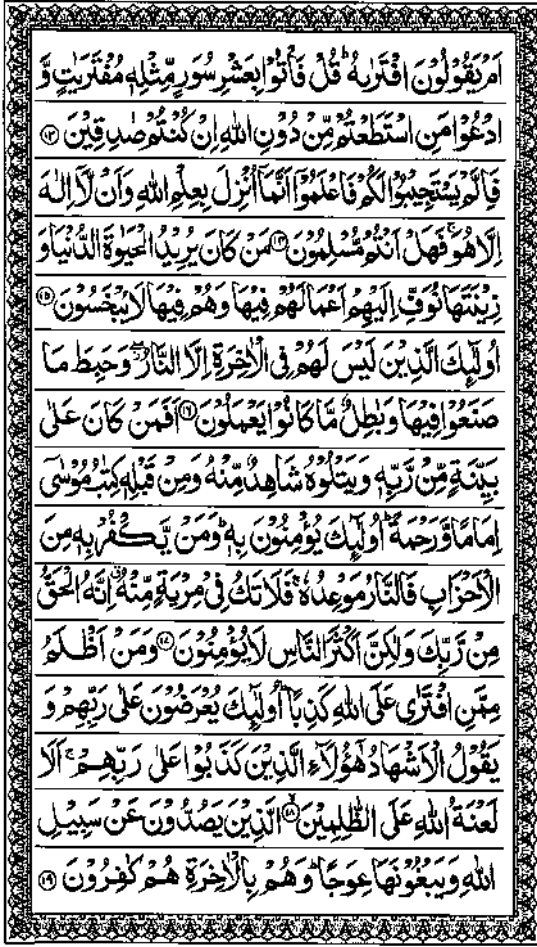 اَمْ يَقُوْلُوْنَ افْتَرٰىهُ ؕ قُلْ فَاْتُوْا بِعَشْرِ سُوَرٍ مِّثْلِهٖ مُفْتَرَيٰتٍ وَّ
ادْعُوْا مَنِ اسْتَطَعْتُمْ مِّنْ دُوْنِ اللّٰهِ اِنْ كُنْتُمْ صٰدِقِيْنَ ۝۱۳
فَاِلَّمْ يَسْتَجِيْبُوْا لَكُمْ فَاعْلَمُوْۤا اَنَّمَاۤ اُنْزِلَ بِعِلْمِ اللّٰهِ وَاَنْ لَّاۤ اِلٰهَ
اِلَّا هُوَ ۚ فَهَلْ اَنْتُمْ مُّسْلِمُوْنَ ۝۱۴ مَنْ كَانَ يُرِيْدُ الْحَيٰوةَ الدُّنْيَا وَ
زِيْنَتَهَا نُوَفِّ اِلَيْهِمْ اَعْمَالَهُمْ فِيْهَا وَهُمْ فِيْهَا لَا يُبْخَسُوْنَ ۝۱۵
اُولٰٓئِكَ الَّذِيْنَ لَيْسَ لَهُمْ فِى الْاٰخِرَةِ اِلَّا النَّارُ ۖ وَحَبِطَ مَا
صَنَعُوْا فِيْهَا وَبٰطِلٌ مَّا كَانُوْا يَعْمَلُوْنَ ۝۱۶ اَفَمَنْ كَانَ عَلٰى
بَيِّنَةٍ مِّنْ رَّبِّهٖ وَيَتْلُوْهُ شَاهِدٌ مِّنْهُ وَمِنْ قَبْلِهٖ كِتٰبُ مُوْسٰۤى
اِمَامًا وَّرَحْمَةً ؕ اُولٰٓئِكَ يُؤْمِنُوْنَ بِهٖ ؕ وَمَنْ يَّكْفُرْ بِهٖ مِنَ
الْاَحْزَابِ فَالنَّارُ مَوْعِدُهٗ ۚ فَلَا تَكُ فِيْ مِرْيَةٍ مِّنْهُ ۗ اِنَّهُ الْحَقُّ
مِنْ رَّبِّكَ وَلٰكِنَّ اَكْثَرَ النَّاسِ لَا يُؤْمِنُوْنَ ۝۱۷ وَمَنْ اَظْلَمُ
مِمَّنِ افْتَرٰى عَلَى اللّٰهِ كَذِبًا ؕ اُولٰٓئِكَ يُعْرَضُوْنَ عَلٰى رَبِّهِمْ وَ
يَقُوْلُ الْاَشْهَادُ هٰۤؤُلَآءِ الَّذِيْنَ كَذَبُوْا عَلٰى رَبِّهِمْ ۚ اَلَا
لَعْنَةُ اللّٰهِ عَلَى الظّٰلِمِيْنَ ۝۱۸ الَّذِيْنَ يَصُدُّوْنَ عَنْ سَبِيْلِ
اللّٰهِ وَيَبْغُوْنَهَا عِوَجًا ؕ وَهُمْ بِالْاٰخِرَةِ هُمْ كٰفِرُوْنَ ۝۱۹